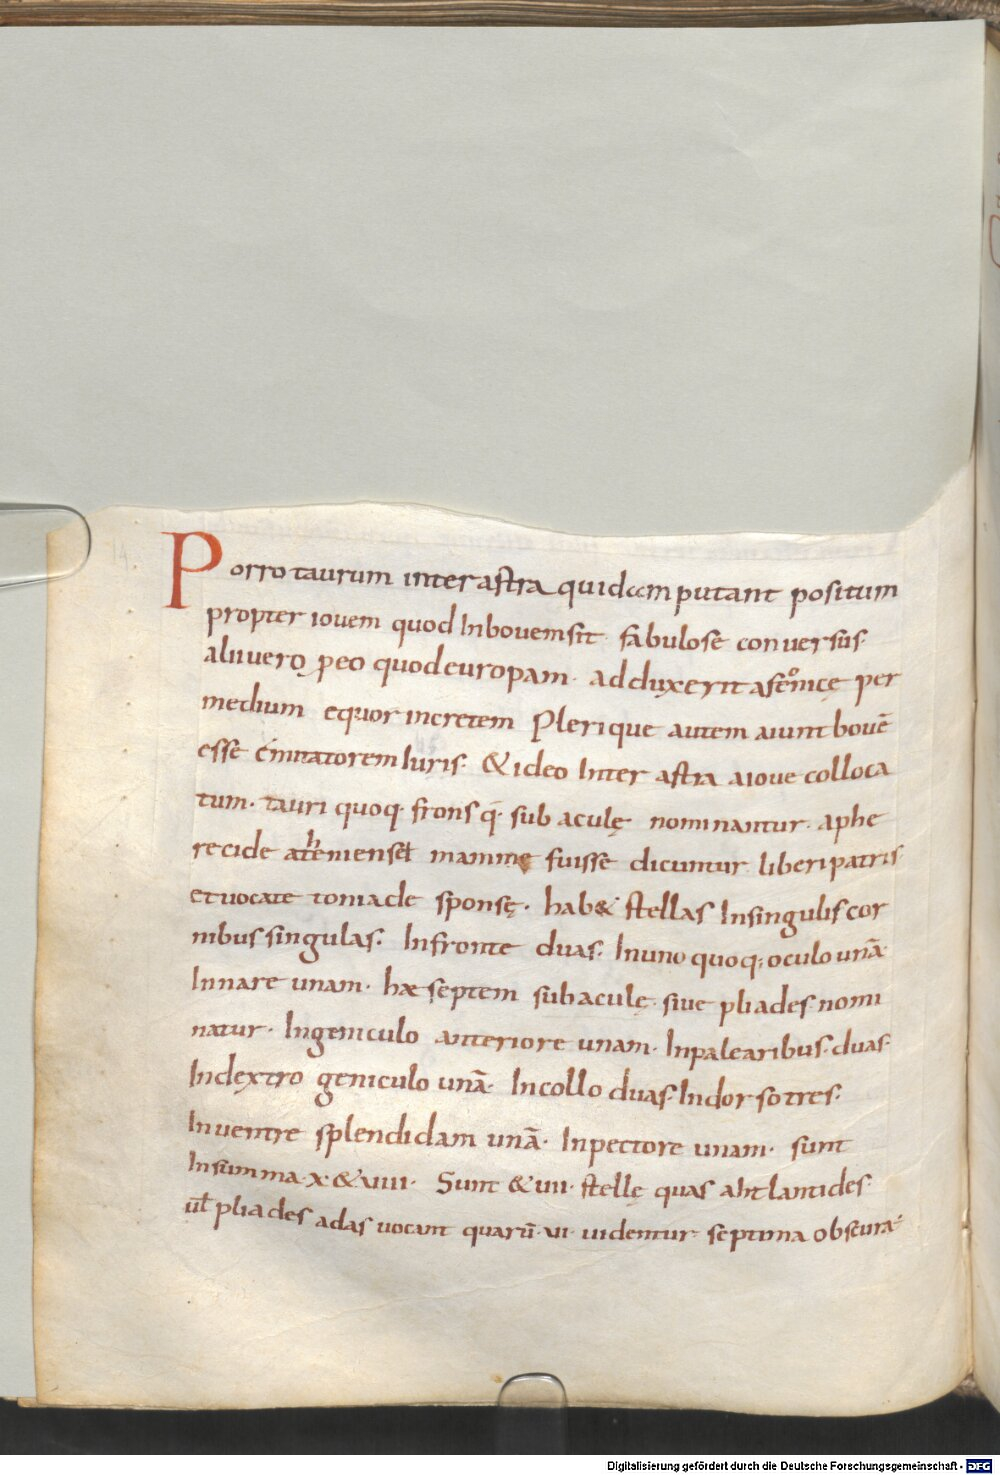 Porro taurum inter astra quidam putant positum
propter iouem quod Inbouem sit fabulose conuersus·
alii uero peo quod europam· adduxerit afenice per
medium equor incretem Plerique autem aiunt bouē
esse emitatorem Iuris· & ideo Inter astra aioue colloca
tum· tauri quoq· frons q̄· sub aculę nominantur· aphe
recide atheniense mamme fuisse dicuntur liberi patris
et uocate toniacle sponsę· hab& stellas Insingulis cor
nibus singulas· Infronte duas· Inuno quoq; oculo unā·
Innare unam· hæ septem subaculę· siue pliades nomi
natur· Ingeniculo anteriore unam· Inpalearibus· duas·
Indextro geniculo unā· Incollo duas· Indorso tres·
Inuentre splendidam unā· Inpectore unam· sunt
Insumma· x & uiiii· Sunt & uii· stellę quas ahtlantides·
ul pliades adas uocant quarū· ui· uidentur· septima obscura·
Digitalisierung gefördert durch die Deutsche Forschungsgemeinschaft - DFG